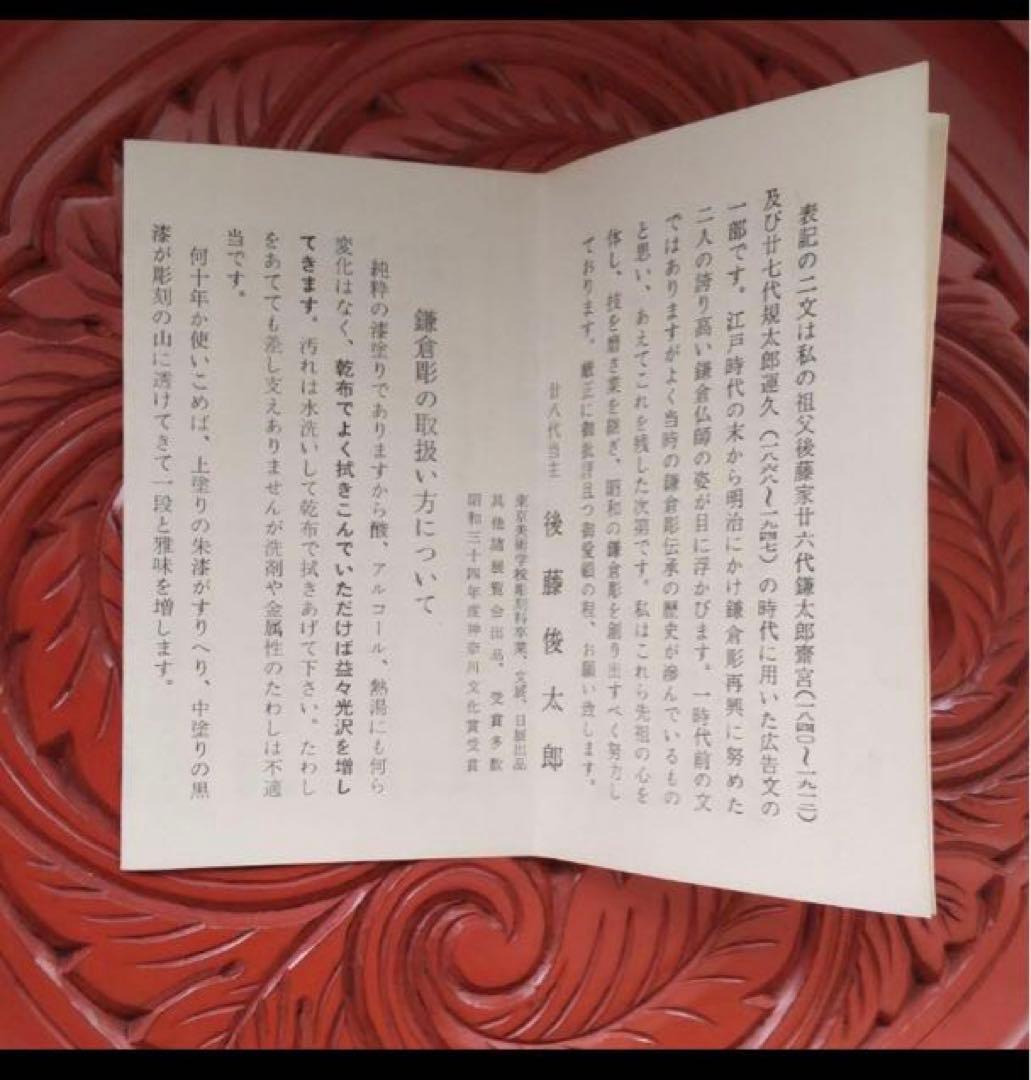 表記の二文は私の祖父後藤家廿六代鎌太郎齋宮(一八四〇〜一九一二)
及び廿七代規太郎運久(一八六八〜一九四七)の時代に用いた広告文の
一部です。江戸時代の末から明治にかけ鎌倉彫再興に努めた
二人の誇り高い鎌倉仏師の姿が目に浮かびます。一時代前の文
ではありますがよく当時の鎌倉彫伝承の歴史が滲んでいるもの
と思い、あえてこれを残した次第です。私はこれら先祖の心を
体し、技を磨き業を継ぎ、昭和の鎌倉彫を創り出すべく努力し
ております。厳正に御批評且つ御愛顧の程、お願い致します。
廿八代当主 後藤俊太郎
東京美術学校彫刻科卒業、文展、日展出品
其他諸展覧会出品、受賞多数
昭和三十四年度神奈川文化賞受賞
鎌倉彫の取扱い方について
純粋の漆塗りでありますから酸、アルコール、熱湯にも何ら
変化はなく、乾布でよく拭きこんでいただけば益々光沢を増し
てきます。汚れは水洗いして乾布で拭きあげて下さい。たわし
をあてても差し支えありませんが洗剤や金属性のたわしは不適
当です。
何十年か使いこめば、上塗りの朱漆がすりへり、中塗りの黒
漆が彫刻の山に透けてきて一段と雅味を増します。